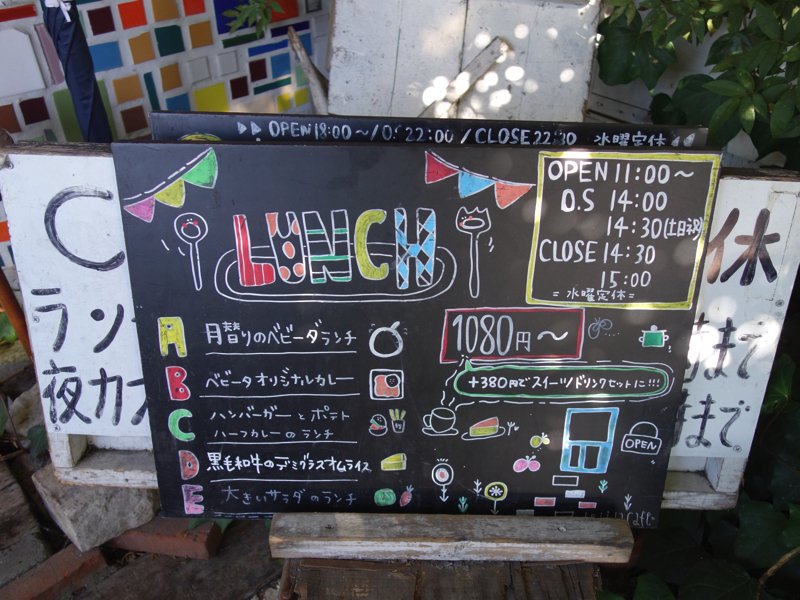 OPEN 18:00〜/O.S 22:00/CLOSE 22:30 水曜定休
LUNCH
OPEN 11:00〜
O.S 14:00
14:30(土日祝)
CLOSE 14:30
15:00
=水曜定休=
A 月替りのベビーダランチ
B ベビータオリジナルカレー
C ハンバーガーとポテト
ハーフカレーのランチ
D 黒毛和牛のデミグラスオムライス
E 大きいサラダのランチ
1080円〜
+380円でスイーツドリンクセットに!!!
OPEN
C
休
ラン
夜カフ
まで
まで